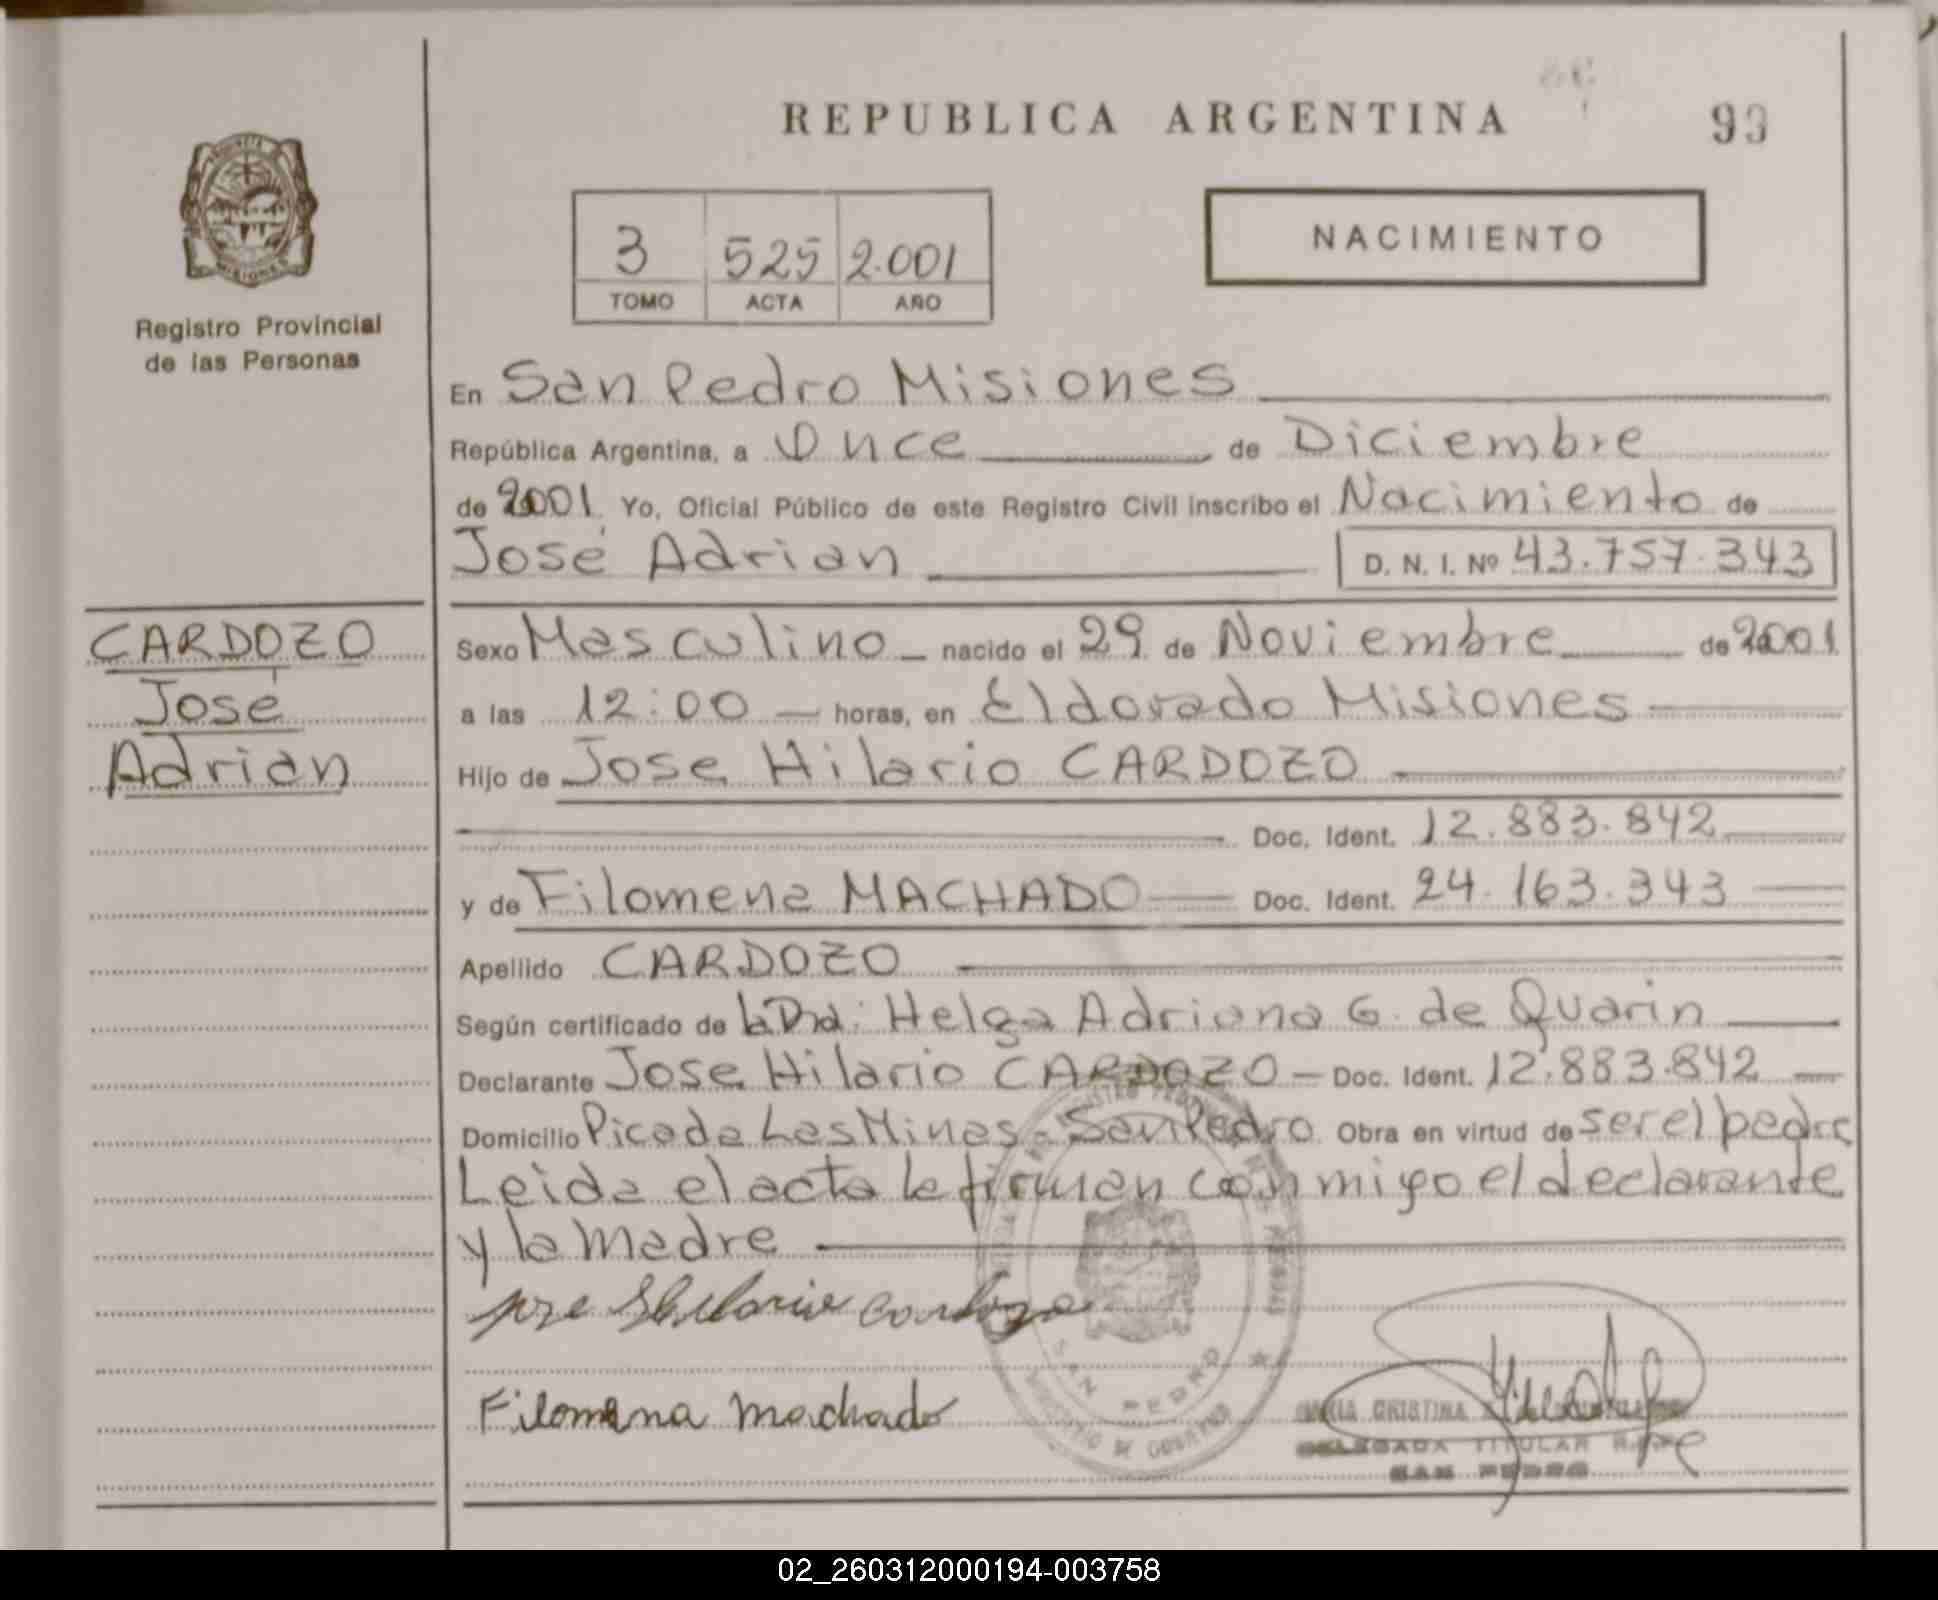 REPUBLICA ARGENTINA
99
Registro Provincial
de las Personas
MISIONES
3 525 2.001
TOMO ACTA AÑO
NACIMIENTO
En San Pedro Misiones
República Argentina, a Once de Diciembre
de 2001 Yo, Oficial Público de este Registro Civil inscribo el Nacimiento de
José Adrian D. N. I. Nº 43.757.343
CARDOZO
José
Adrian
Sexo Masculino nacido el 29 de Noviembre de 2001
a las 12:00 horas, en Eldorado Misiones
Hijo de Jose Hilario CARDOZO
Doc. Ident. 12.883.842
y de Filomena MACHADO Doc. Ident. 24.163.343
Apellido CARDOZO
Según certificado de la Dra: Helga Adriana G. de Quarin
Declarante Jose Hilario CARDOZO Doc. Ident. 12.883.842
Domicilio Picada Las Minas - San Pedro Obra en virtud de ser el padre
Leida el acta la firman conmigo el declarante
y la madre
jose Hilario cardozo
Filomena machado
SAN PEDRO
MINISTERIO DE GOBIERNO
MARIA CRISTINA
DELEGADA TITULAR R.P.P.
SAN PEDRO
02_260312000194-003758